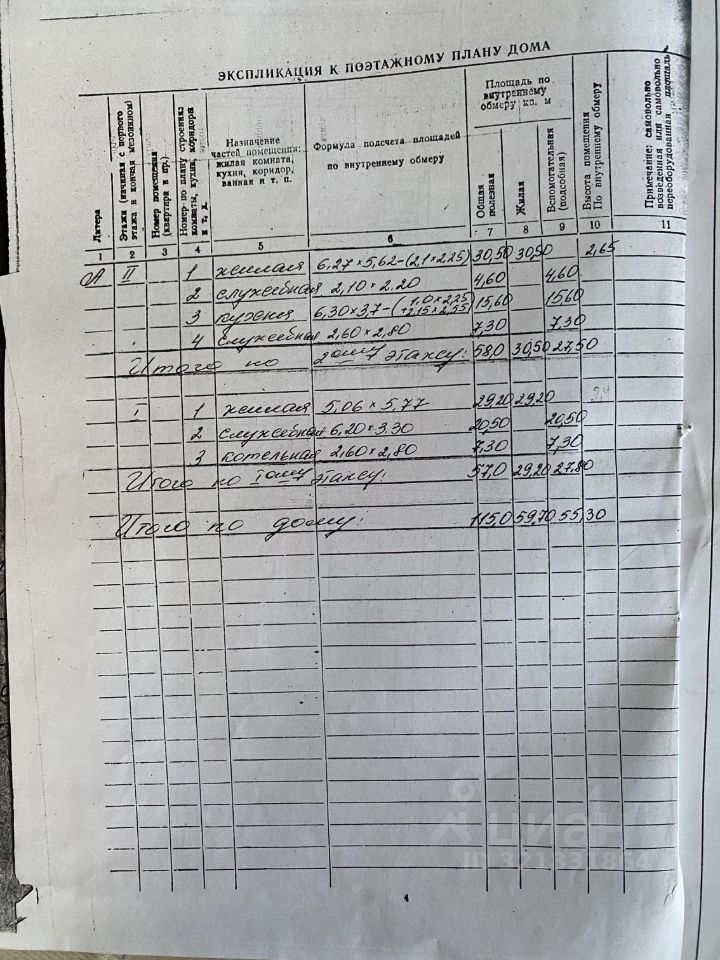 ЭКСПЛИКАЦИЯ К ПОЭТАЖНОМУ ПЛАНУ ДОМА
Литера
Этажи (начиная с первого этажа и кончая мезонином)
Номер помещения (квартира и пр.)
Номер по плану строения: комнаты, кухни, коридора и т. д.
Назначение частей помещения: жилая комната, кухня, коридор, ванная и т. п.
Формула подсчета площадей по внутреннему обмеру
Площадь по внутреннему обмеру кв. м
Общая полезная
Жилая
Вспомогательная (подсобная)
Высота помещения По внутреннему обмеру
Примечание: самовольно возведенная или самовольно переоборудованная площадь
1 2 3 4 5 6 7 8 9 10 11
А II 1 жилая 6,27×5,62-(2,1×2,25) 30,50 30,50 2,65
2 служебная 2,10×2,20 4,60 4,60
3 кухня 6,30×3,7-(1,0×2,25+2,15×2,55) 15,60 15,60
4 служебная 2,60×2,80 7,30 7,30
Итого по 2ому этажу: 58,0 30,50 27,50
I 1 жилая 5,06×5,77 29,20 29,20
2 служебная 6,20×3,30 20,50 20,50
3 котельная 2,60×2,80 7,30 7,30
Итого по Iому этажу: 57,0 29,20 27,80
Итого по дому: 115,0 59,70 55,30
циан
4